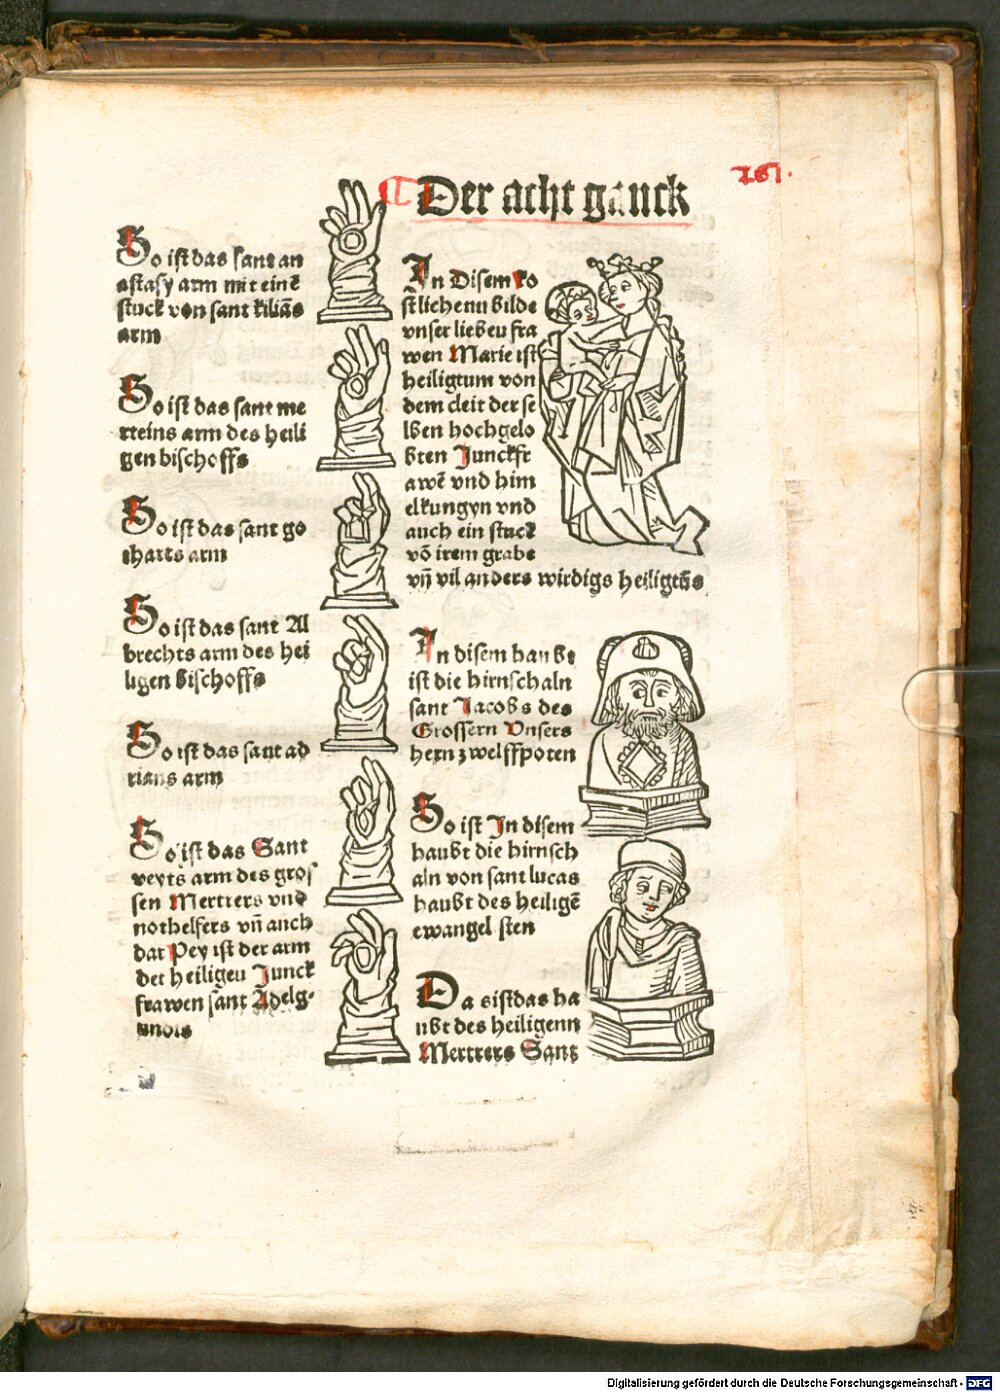 So ist das sant an
astasy arm mit einē
stuck von sant kiliās
arm
So ist das sant me
rteins arm des heili
gen bischoffs
So ist das sant go
thatts arm
So ist das sant Al
brechts arm des hei
ligen bischoffs
So ist das sant ad
rians arm
So ist das Sant
veyts arm des gros
sen Mertrers vnd
nothelfers vñ auch
dar Pey ist der arm
der heiligen Junck
frawen sant Adelg-
undis
Der acht ganck
261.
In Disem ko
stlichenn bilde
vnser lieben fra
wen Marie ist
heiligtum von
dem cleit der se
lben hochgelo
bten Junckfr
awē vnd him
elkungyn vnd
auch ein stuck
vō irem grabe
vñ vil anders wirdigs heiligtūs
In disem haubt
ist die hirnschaln
sant Jacobs des
Grossern Vnsers
hern zwelffpoten
So ist In disem
haubt die hirnsch
aln von sant lucas
haubt des heiligē
ewangelisten
Da eistdas ha
ubt des heiligenn
Mertrers Sant
Digitalisierung gefördert durch die Deutsche Forschungsgemeinschaft - DFG